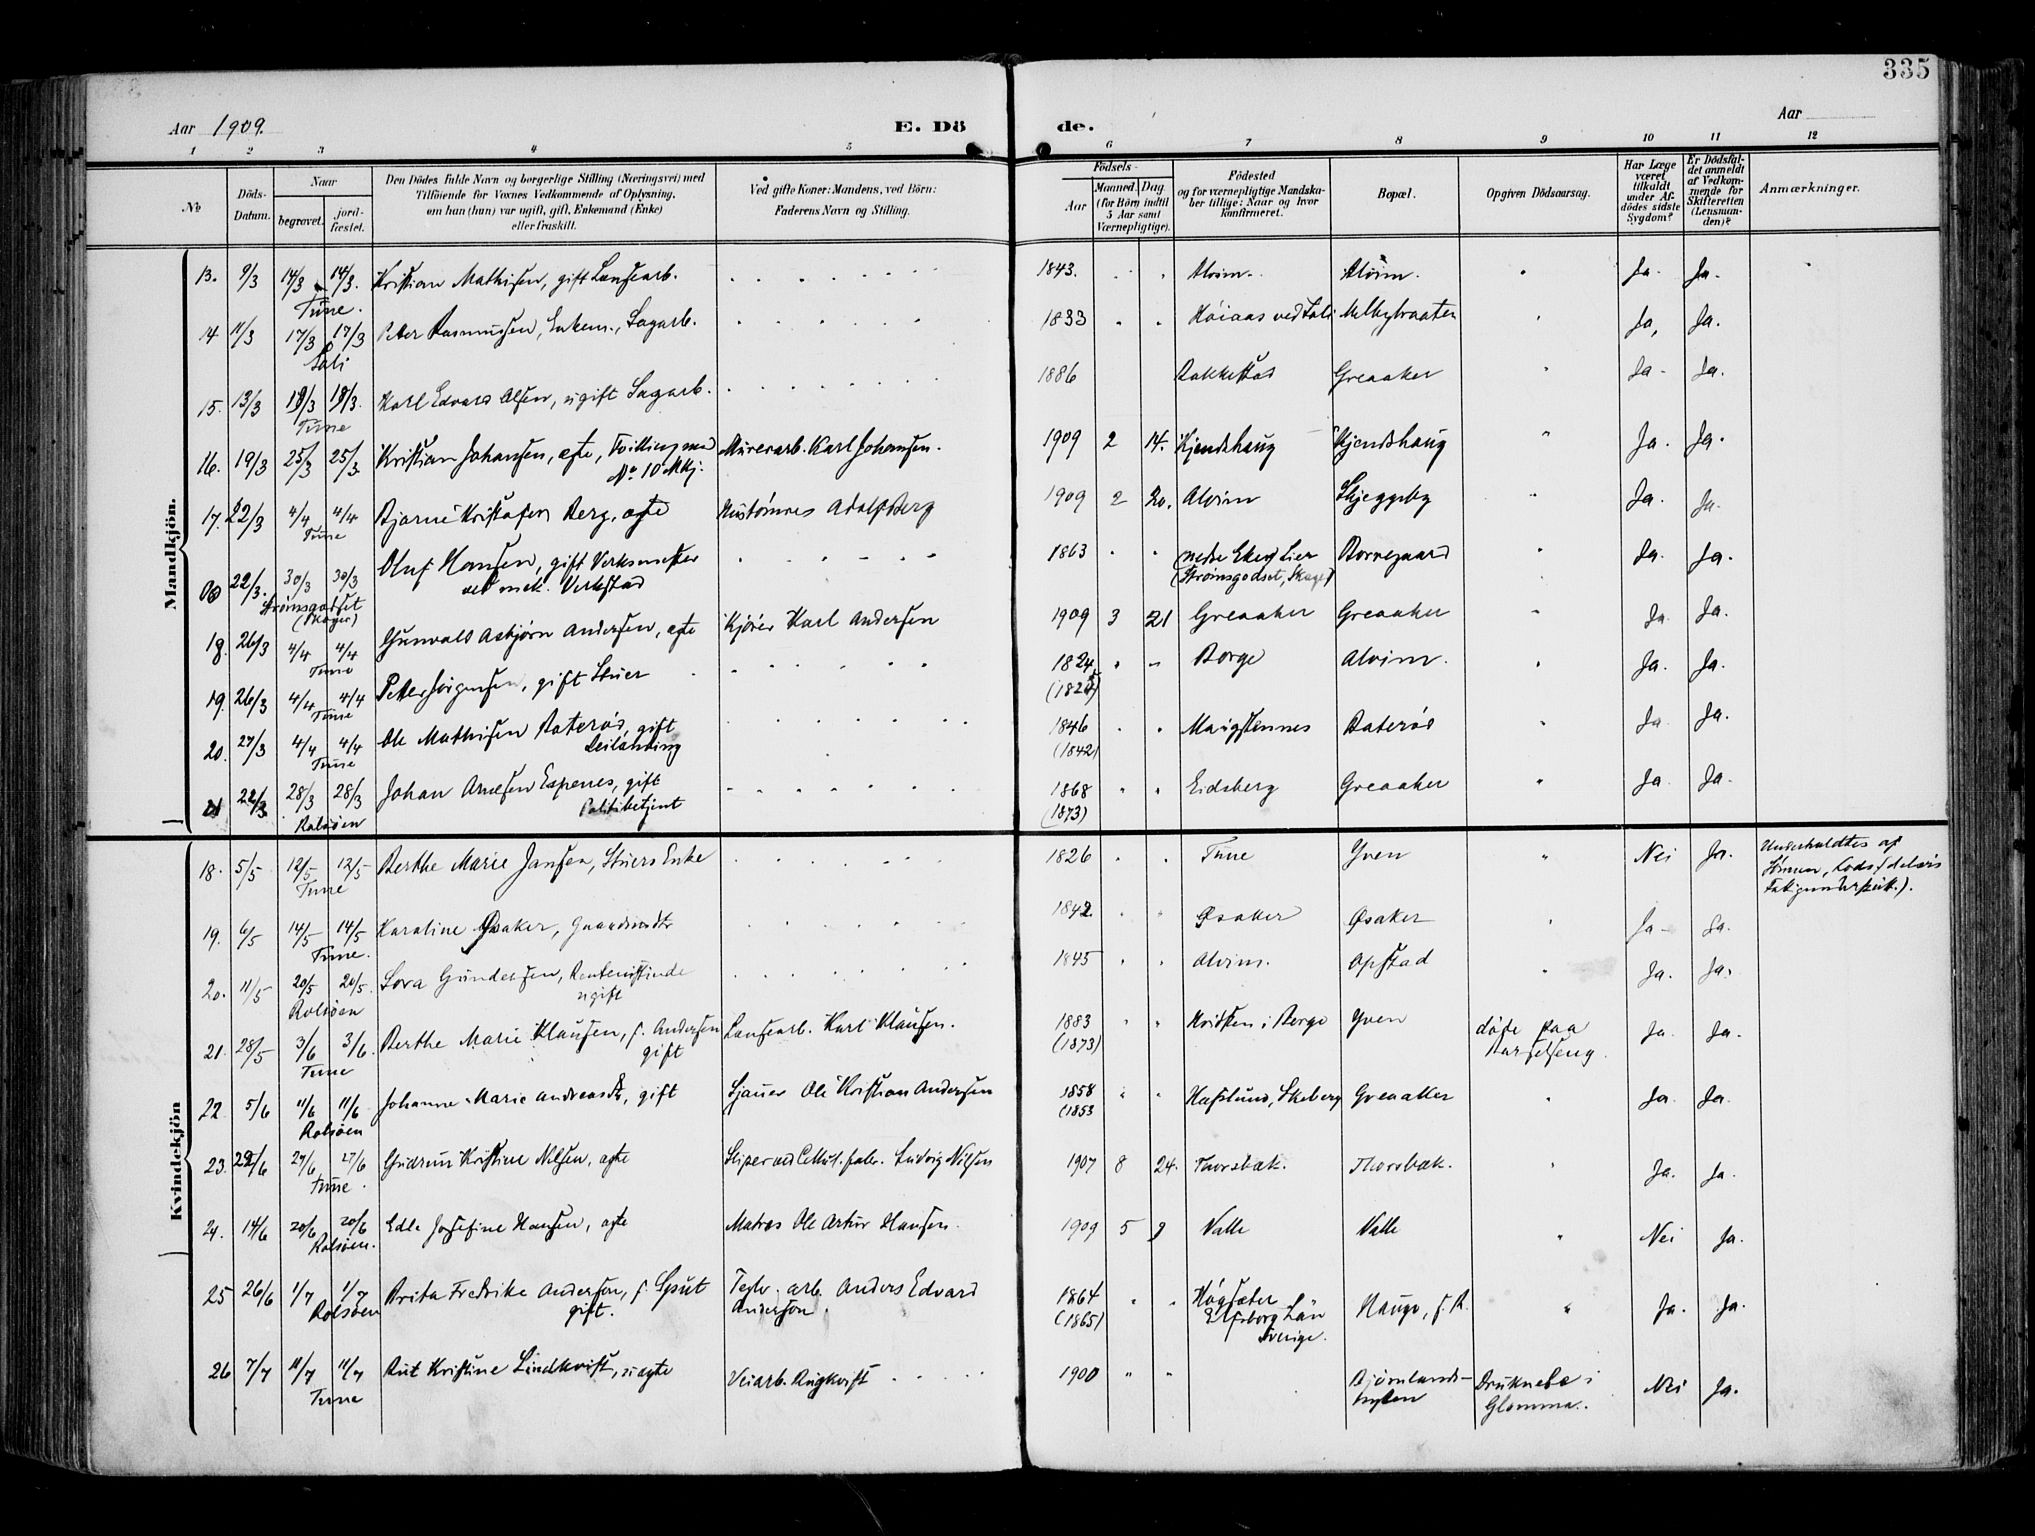 335
Aar 1909.
E. Dö
de.
Aar
1 2 3 4 5 6 7 8 9 10 11 12
№
Döds-Datum.
Naar
begravet.
jord-fæstet.
Den Dödes fulde Navn og borgerlige Stilling (Næringsvei) med
Tilföiende for Voxnes Vedkommende af Oplysning,
om han (hun) var ugift, gift, Enkemand (Enke)
eller fraskilt.
Ved gifte Koner: Mandens, ved Börn:
Faderens Navn og Stilling.
Födsels-
Aar
Maaned. Dag.
(for Börn indtil
5 Aar samt
Værnepligtige).
Födested
og for værnepligtige Mandska-
ber tillige: Naar og hvor
konfirmeret.
Bopæl.
Opgiven Dödsaarsag.
Har Læge
været
tilkaldt
under Af-
dödes sidste
Sygdom?
Er Dödsfal-
det anmeldt
af Vedkom-
mende for
Skifteretten
(Lensman-
den)?
Anmærkninger.
Mandkjön.
13. 9/3 14/3 14/3. Kristian Mathisen, gift Landsarb. 1843. Alvim. Alvim. Ja. Ja.
Tune.
14 11/3 17/3 17/3 Peter Rasmussen, Enkem., Sagarb. 1833 Höiaas ved Soli Melbybraaten Ja, Ja.
Soli
15. 13/3 19/3 19/3. Karl Edvard Olsen, ugift Sagarb. 1886 Rakkestad Greaaker Ja - Ja.
Tune
16. 19/3 25/3 25/3. Kristian Johansen, ægte, Tvilling med Murerarb. Karl Johansen. 1909 2 14. Kjendshaug Kjendshaug Ja. Ja.
№ 10 Mkj.
17. 22/3 4/4 4/4 Bjarne Kristofer Berg, ægte Hustömres Adolf Berg 1909 2 20. Alvim Skjeggeby Ja. Ja.
Tune
22/3. 30/3 30/3 Oluf Hansen, gift Verksmester 1863 nedre Eker, Lier Borregaard Ja. Ja.
Strömsgodset ved mek. Verkstad (Strömsgodset, Skoger)
(Skoger)
18. 26/3 4/4 4/4 Gunvald Asbjørn Andersen, ægte Kjörer Karl Andersen 1909 3 21 Greaaker Greaaker Ja Ja.
Tune
19. 26/3 4/4 4/4 Petter Jörgensen, gift Stuer 1824 Borge Alvim. Ja. Ja.
Tune
20. 27/3 4/4 4/4 Ole Mathisen Raterød, gift 1846 Raterød Ja Ja.
Tune Leilænding (1842)
21 22/3. 28/3 28/3 Johan Arnesen Espenes, gift 1868 Eidsberg Greaaker Ja Ja.
Rolsöen Politibetjent (1873)
Kvindekjön
18. 5/5 12/5 12/5 Berthe Marie Jansen, Stuers Enke 1826 Tune Yven Nei Ja. Underholdtes af
Tune
19. 6/5 14/5 14/5 Karoline Øsaker, Gaardmdtr 1842 Øsaker Øsaker Ja - Ja.
Tune.
20. 11/5 20/5 20/5. Lova Gundersen, Rentenistinde 1845 Alvim. Opstad Ja. Ja.
Rolsöen ugift
21. 28/5 3/6 3/6. Berthe Marie Klausen, f. Andersen Landsarb. Karl Klausen. 1883 i Borge Yven døde paa Ja. Ja.
Tune gift (1873) Barselseng.
22. 5/6 11/6 11/6 Johanne Marie Andreasdtr, gift Sjauer Ole Kristian Andersen 1858 Hafslund, Skeberg Greaaker Ja Ja.
Rolsöen (1853
23. 22/6 27/6 27/6 Gudrun Kristine Nilsen, ægte Sliper ved Cellul.fabr. Ludvig Nilsen 1907 8 24. Thorsbæk. Thorsbæk. Ja. Ja.
Tune.
24. 14/6 20/6 20/6 Edle Josefine Hansen, ægte Matros Ole Artur Hansen. 1909 5 9 Valle Valle Nei Ja.
Rolsöen.
25 26/6 1/7 1/7 Brita Fredrike Anderson, f. Sput Teglv. arb. Anders Edvard 1864 Högsæter Hauge, f. R. Ja. Ja.
Rolsöen gift. Anderson. (1865) Elfsborg Län
Sverige.
26 7/7 11/7 11/7 Rut Kristine Lindkvist, uægte Veiarb. Ringkvist 1900 Bjørnlands- Druknede i Nei Ja.
Tune hytten Glomma.